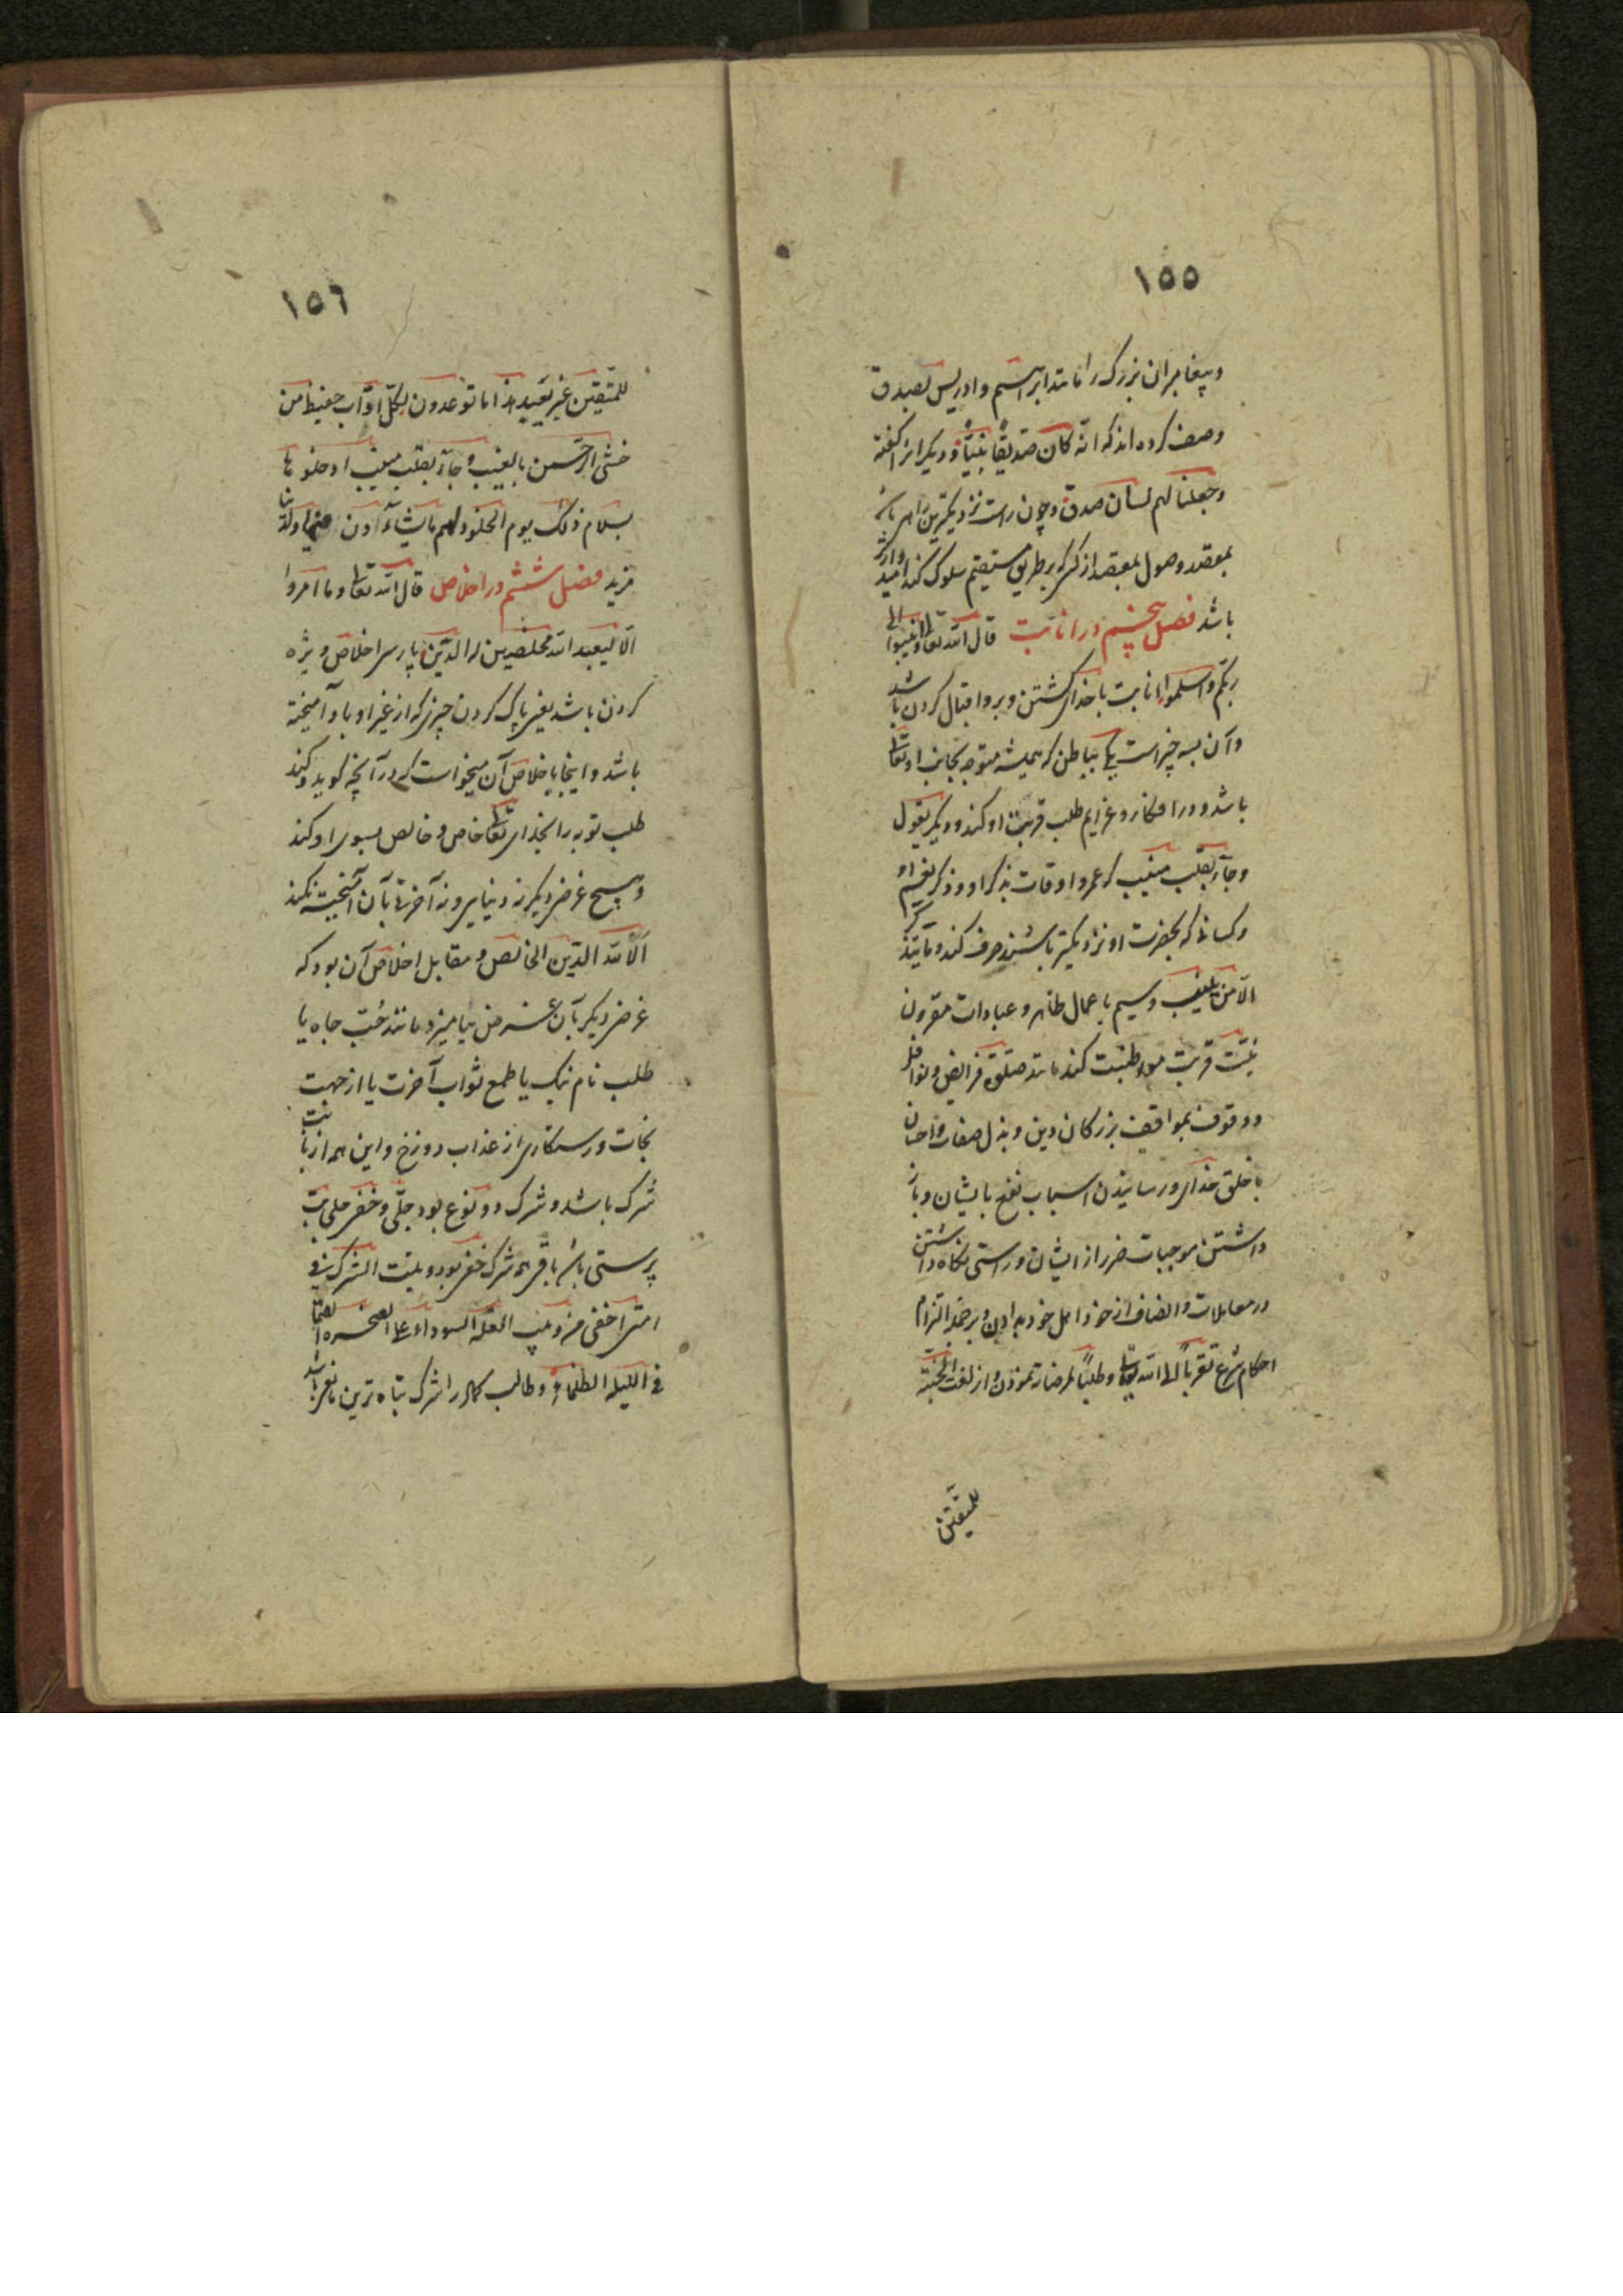 ١٥٥
وپیغامبران بزرک را مانند ابراهیم وادریس بصدق
وصف کرده اند که انه کان صدیقا نبیا ودیکرانرا کفته
وجعلنا لهم لسان صدق وچون راست نزدیکترین راهی باشد
بمقصد وصول بمقصد از کسی که بر طریق مستقیم سلوک کند امیدوارتر
باشد فصل پنجم در انابت قال الله تعالی وانیبوا الی
ربکم واسلموا له انابت با خدای کشتن وبرو اقبال کردن باشد
وآن بسه چیز است یکی بباطن که همیشه متوجه بجانب او تعالی
باشد ودر افکار وعزایم طلب قربت او کند ودیکر بقول
وجآء بقلب منیب که عمر واوقات بذکر او وذکر نعیم او
وکسانی که بحضرت او نزدیکتر باشند صرف کند وما یتذکر
الا من ینیب وسیم باعمال ظاهر وعبادات مقرون
بنیت قربت مواظبت کند مانند صلوة فرایض ونوافل
ووقوف بمواقف بزرکان دین وبذل صدقات واحسان
با خلق خدای ورسانیدن اسباب نفع بایشان وباز
داشتن موجبات ضرر از ایشان وراستی نکاه داشتن
در معاملات وانصاف از خود واهل خود بدادن وبر جمله التزام
احکام شرع تقربا الی الله تعالی وطلبا لمرضاته نمودن وازلفت الجنة
للمتقین
١٥٦
للمتقین غیر بعید هذا ما توعدون لکل اواب حفیظ من
خشی الرحمن بالغیب وجآء بقلب منیب ادخلوها
بسلام ذلک یوم الخلود لهم ما یشآءون فیها ولدینا
مزید فصل ششم در اخلاص قال الله تعالی وما امروا
الا لیعبد الله مخلصین له الدین پارسی اخلاص ویژه
کردن باشد یعنی پاک کردن چیزی که از غیر او با او آمیخته
باشد واینجا باخلاص آن میخواست که در آنچه کوید وکند
طلب توبه را بخدای تعالی خاص وخالص بسوی او کند
وهیچ غرض دیکر نه دنیایی ونه آخرتی با آن آمیخته نکند
الا لله الدین الخالص ومقابل اخلاص آن بود که
غرض دیکر با آن غرض بیامیزد مانند حب جاه یا
طلب نام نیک یا طمع ثواب آخرت یا از جهت
نجات ورستکاری از عذاب دوزخ واین همه از بابت
شرک باشد وشرک دو نوع بود جلی وخفی جلی بت
پرستی باشد باقی همه شرک خفی بود ونیت الشرک فی
امتی اخفی من دبیب النملة السوداء علی الصخرة الصمّا
فی اللیلة الظلماء وطالب کمال را شرک تباه ترین مانعی باشد